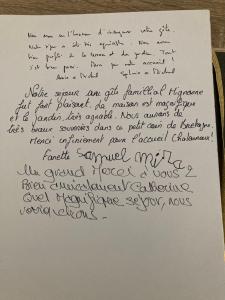 Nous avons eu l'honneur d'inaugurer votre gîte.
Notre séjour a été très agréable. Nous avons
bien profité de la terrasse et du jardin. Tout
s'est bien passé. Merci pour votre accueil !
Notre séjour au gîte familial Mignonne
fut fort plaisant. La maison est magnifique
et le jardin très agréable. Nous aurons de
très beaux souvenirs dans ce petit coin de Bretagne.
Merci infiniment pour l'accueil Chaleureux!
Fanette Samuel Mira
Un grand Merci à vous 2
Bien amicalement Catherine
Quel Magnifique séjour, nous